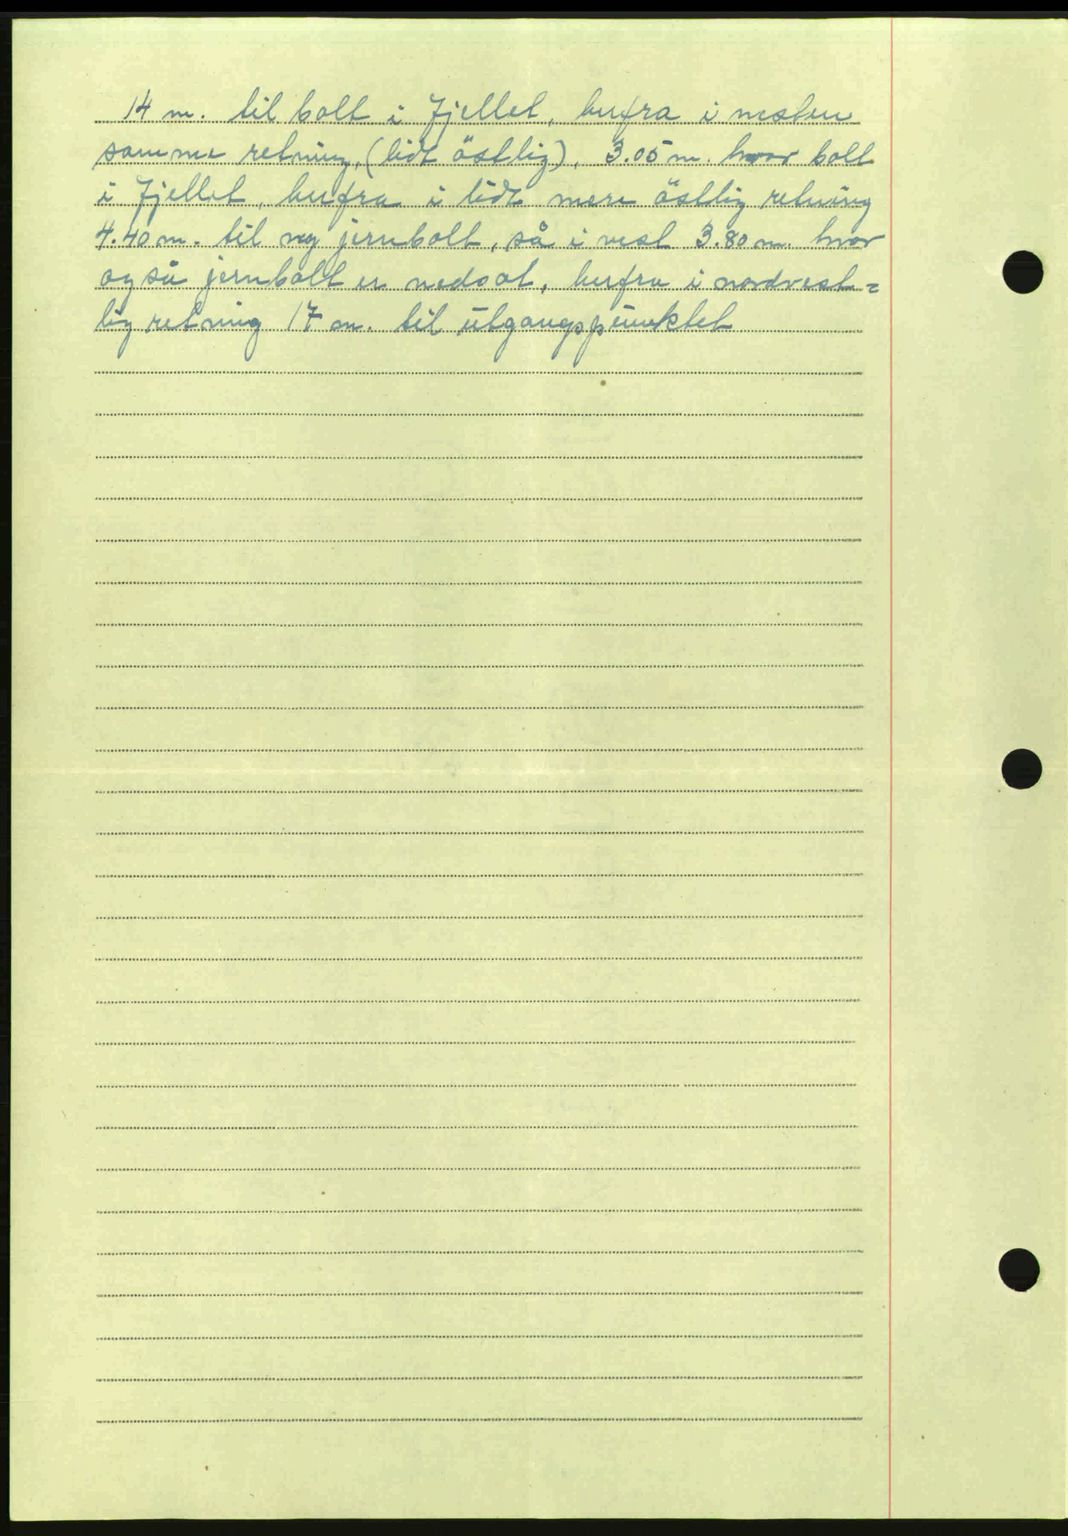 14 m. til bolt i Fjellet, herfra i nesten
samme retning, (lidt östlig), 3.05 m. hvor bolt
i Fjellet, herfra i lidt mere östlig retning
4.40 m. til ny jernbolt, så i vest 3.80 m. hvor
også jernbolt er nedsat, herfra i nordvest=
lig retning 17 m. til utgangspunktet